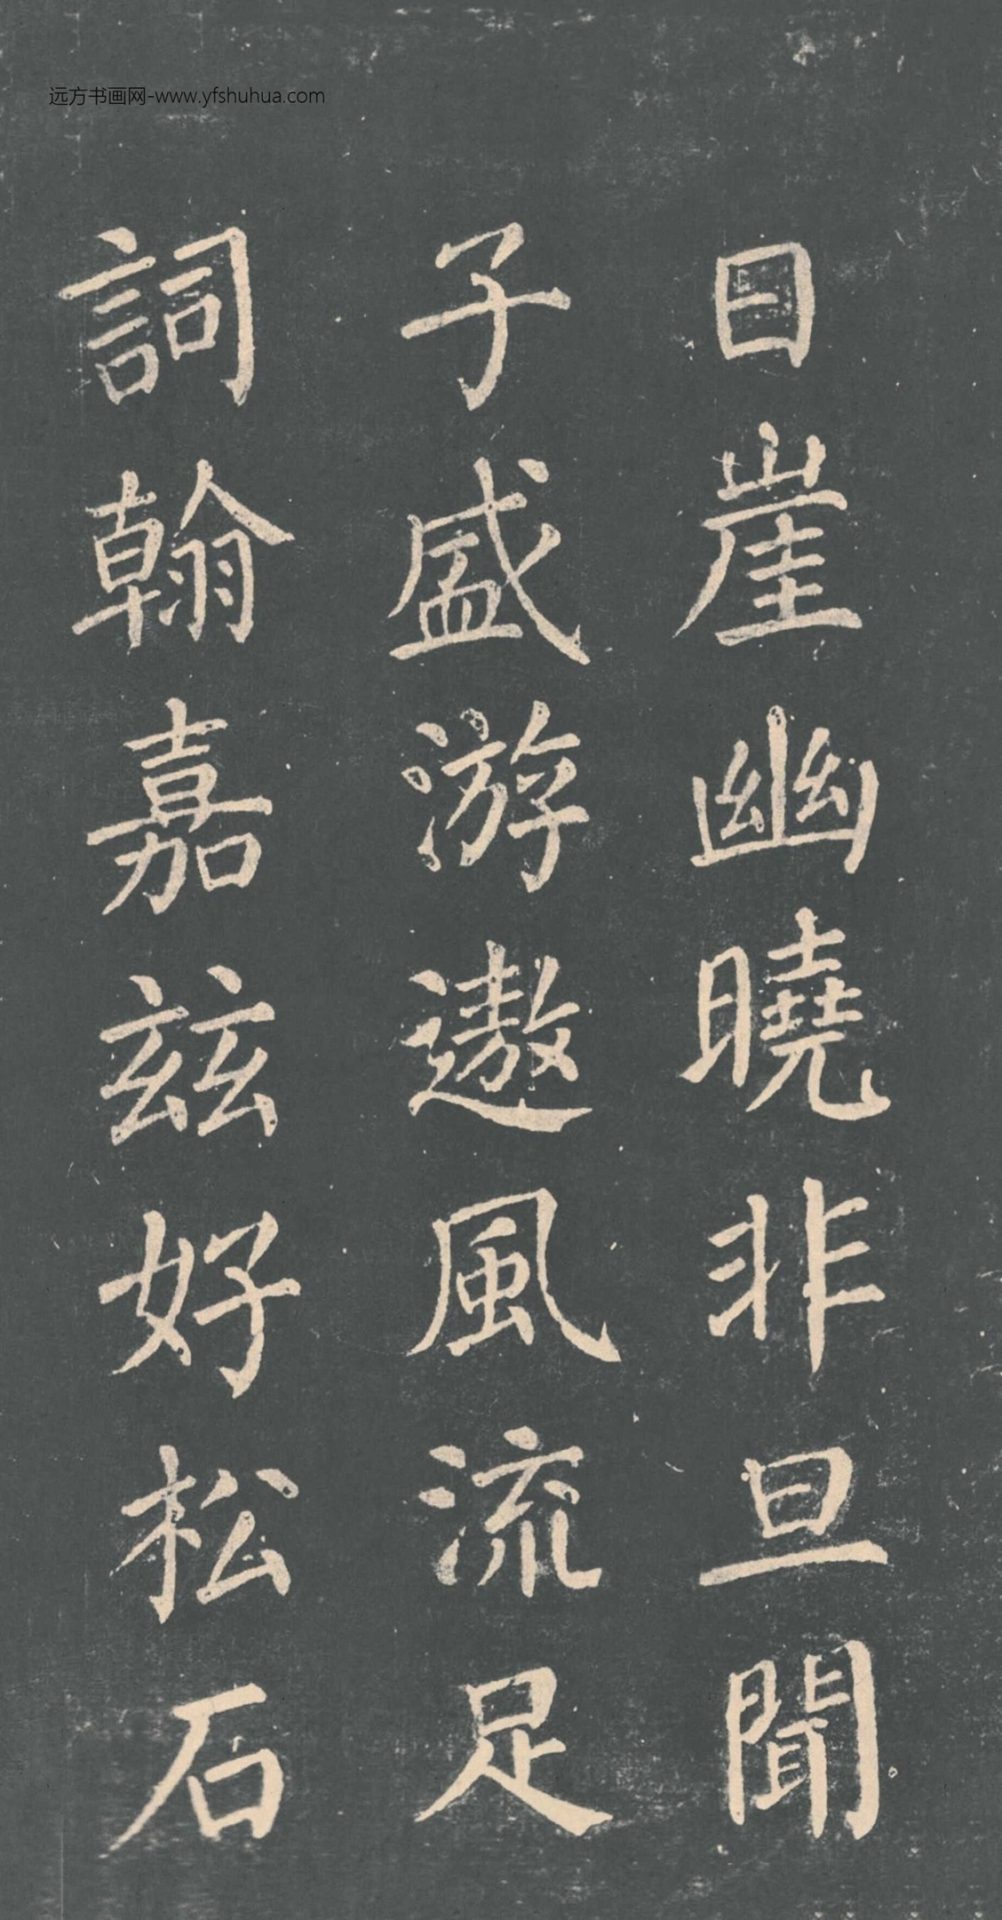 远方书画网-www.yfshuhua.com
日崖幽曉非旦聞
子盛游遨風流足
詞翰嘉兹好松石